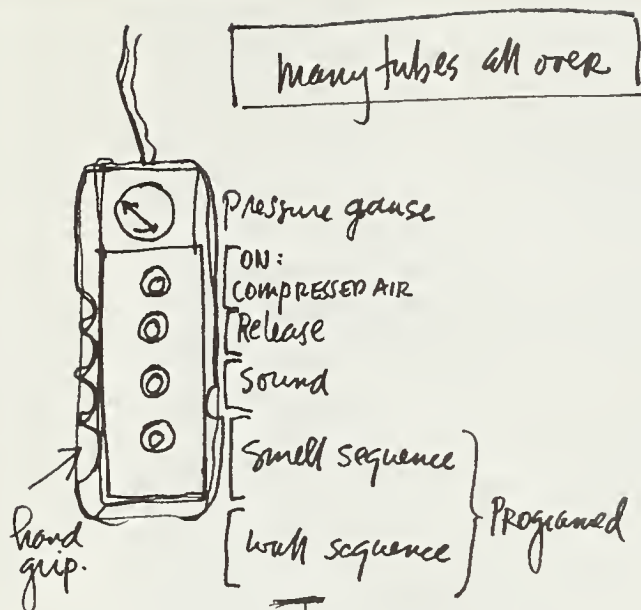 many tubes all over
Pressure gauge
ON:
COMPRESSED AIR
Release
Sound
Smell sequence
wall sequence
Programed
hand
grip.